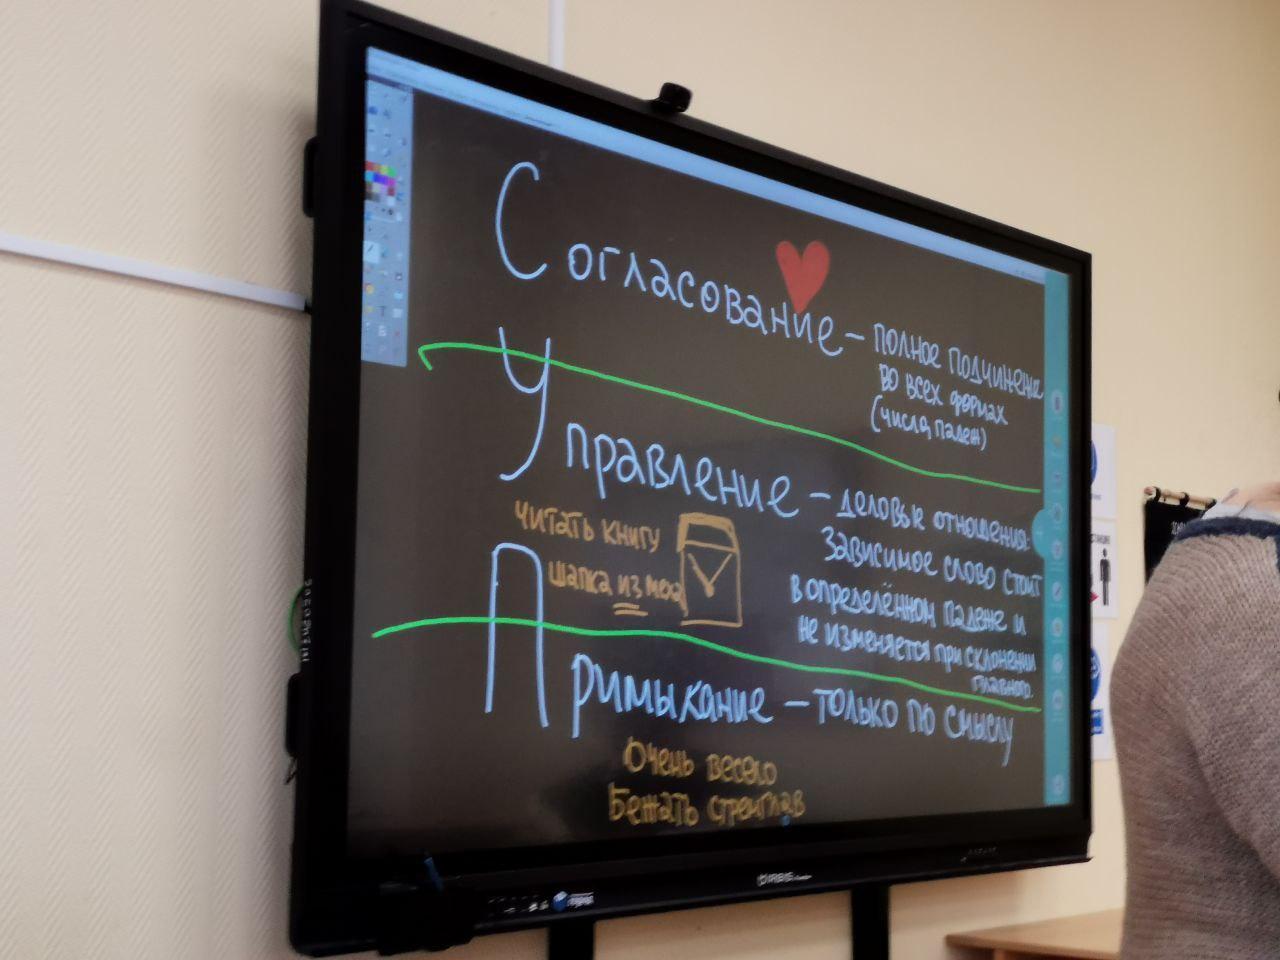 Согласование – полное подчинение
во всех формах
(числа, падеж)
Управление – деловые отношения:
зависимое слово стоит
в определённом падеже и
не изменяется при склонении
главного.
читать книгу
шапка из меха
Примыкание – только по смыслу
Очень весело
Бежать стремглав
IRBIS